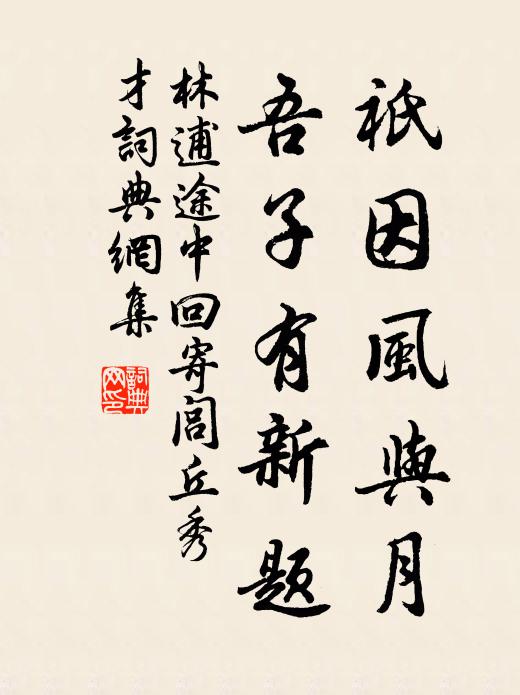 祇因風與月
吾子有新题
林逋途中回寄闾丘秀
才詞典網集
詞典
网印